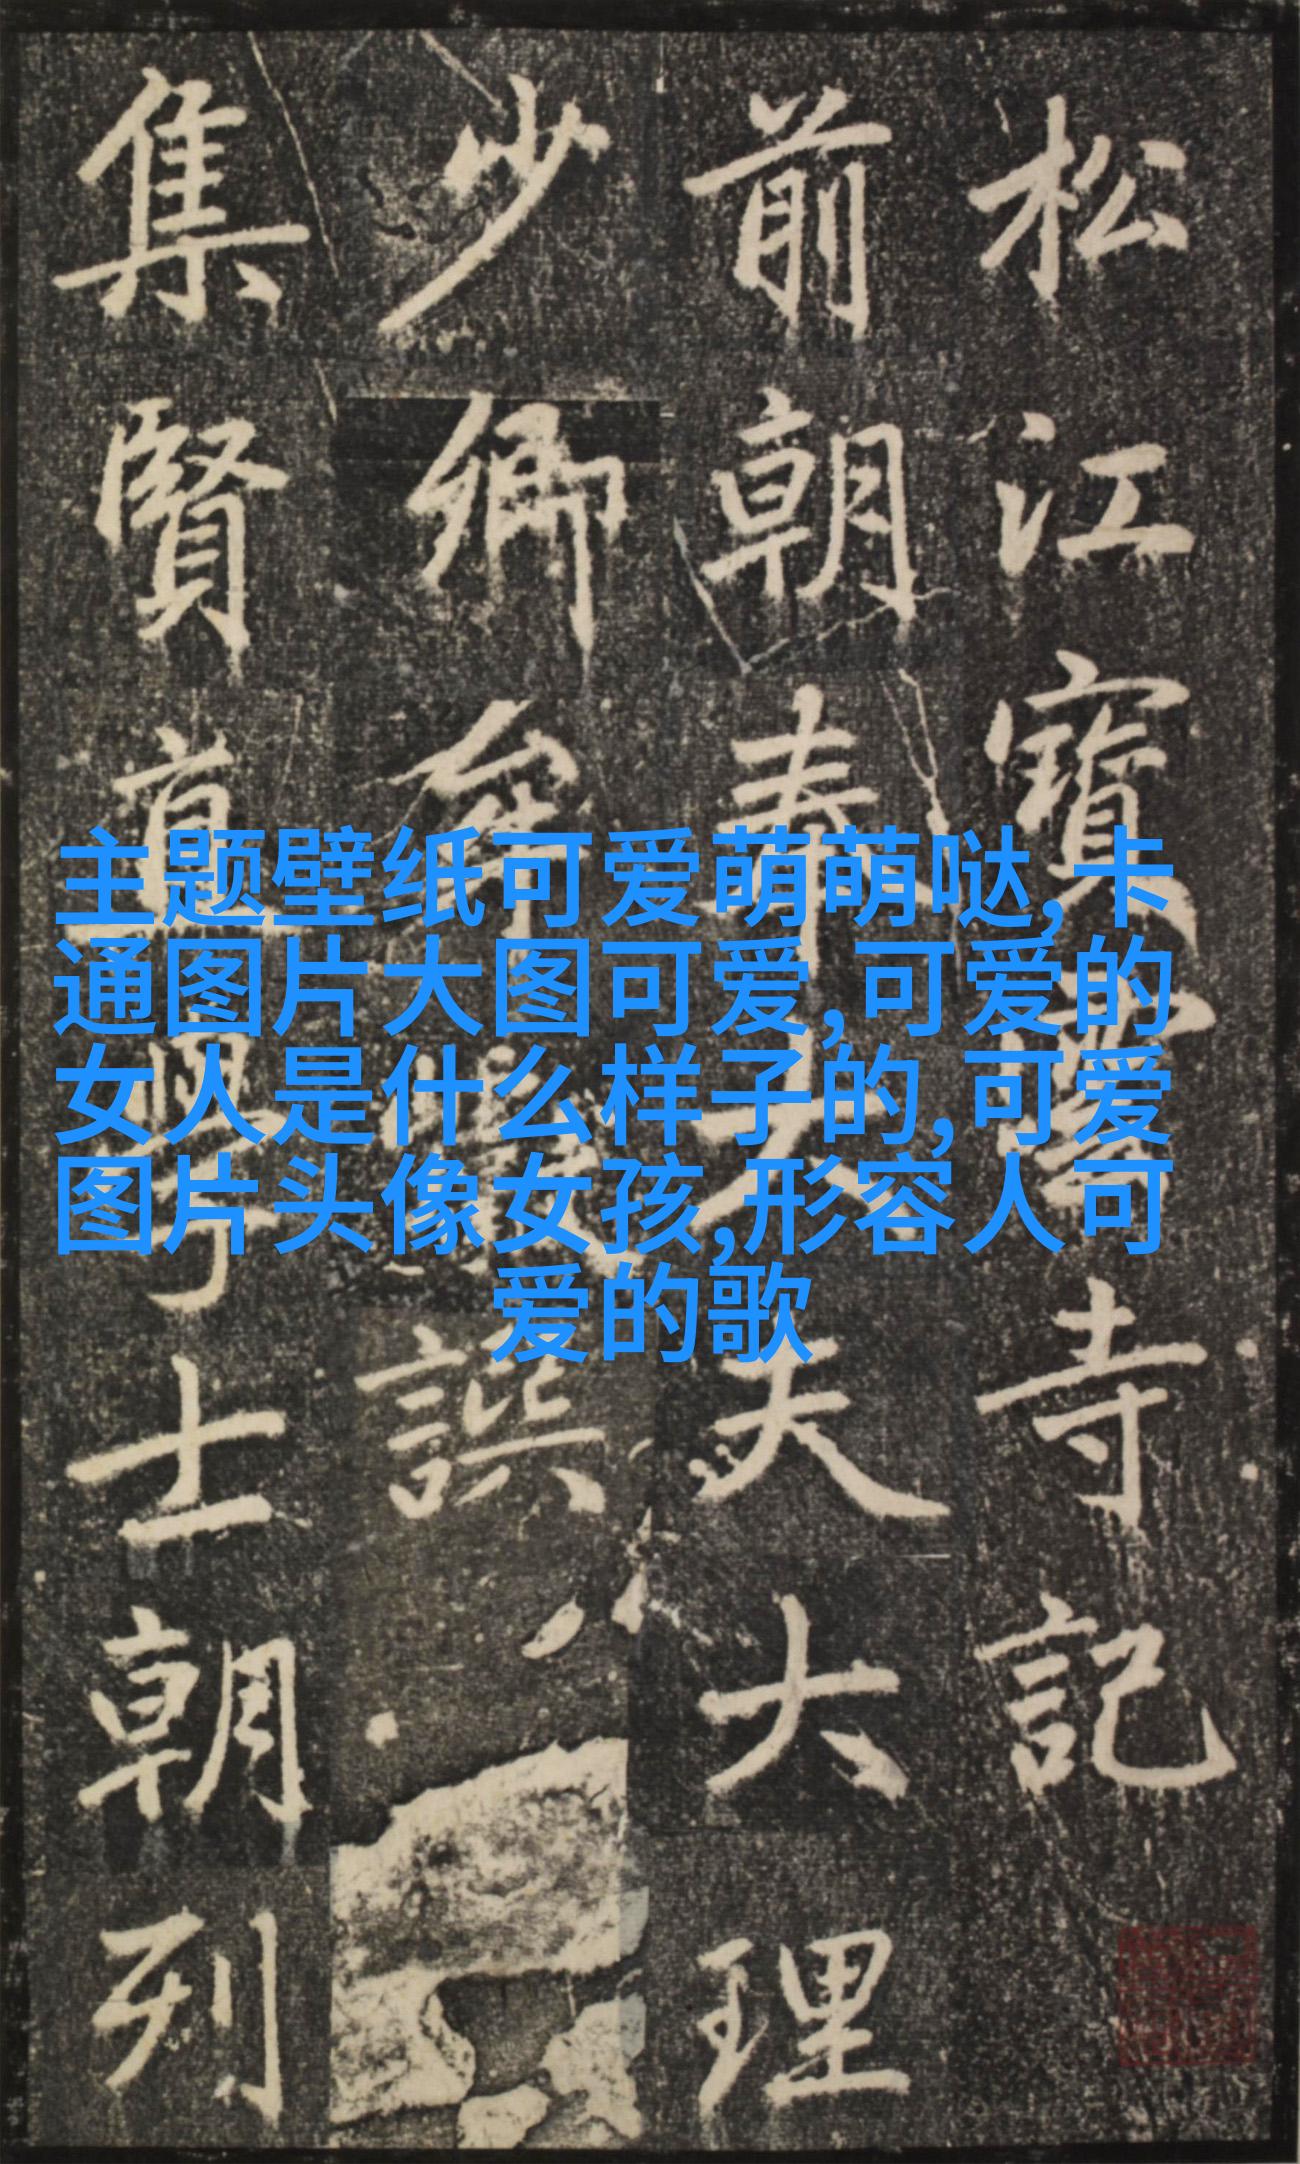 松江寳雲寺記
前朝奉大夫大理
少卿牟巘譔
集賢直學士朝列
主题壁纸可爱萌萌哒,卡
通图片大图可爱,可爱的
女人是什么样子的,可爱
图片头像女孩,形容人可
爱的歌